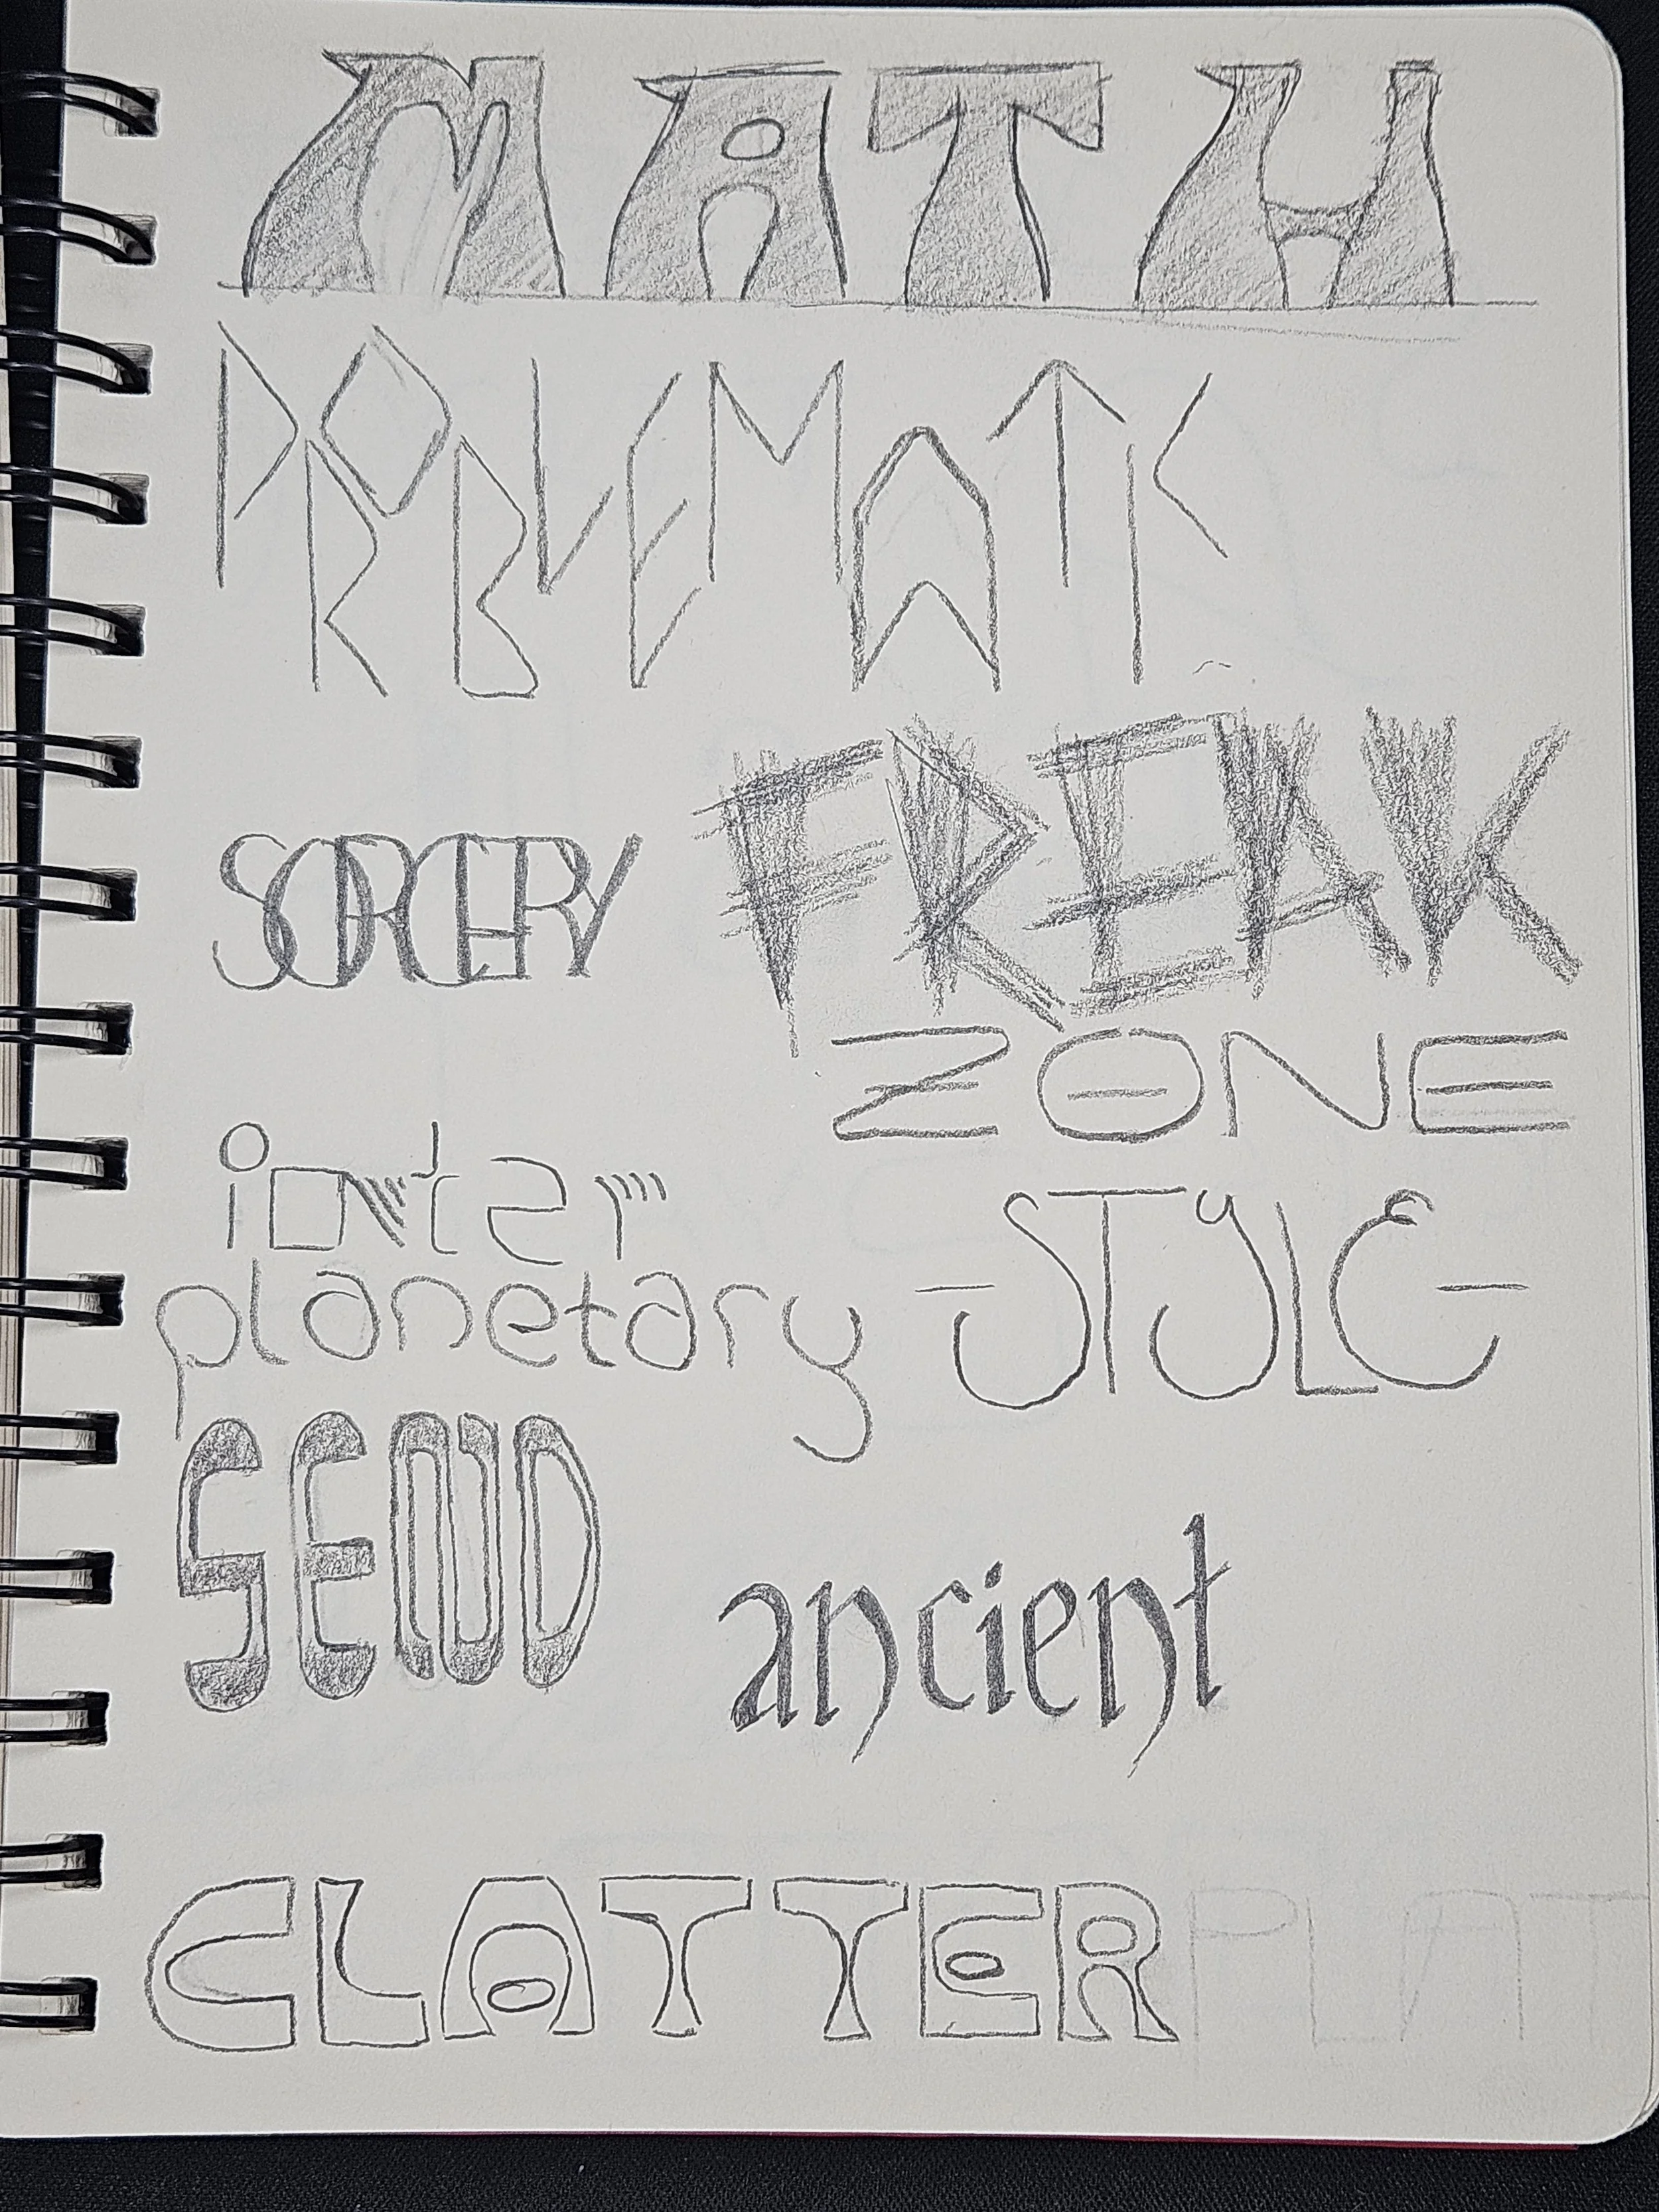 MATH
PROBLEMATIC
SORCERY FREAK
ZONE
inter
planetary -STYLE-
SEND
ancient
CLATTER PLAT